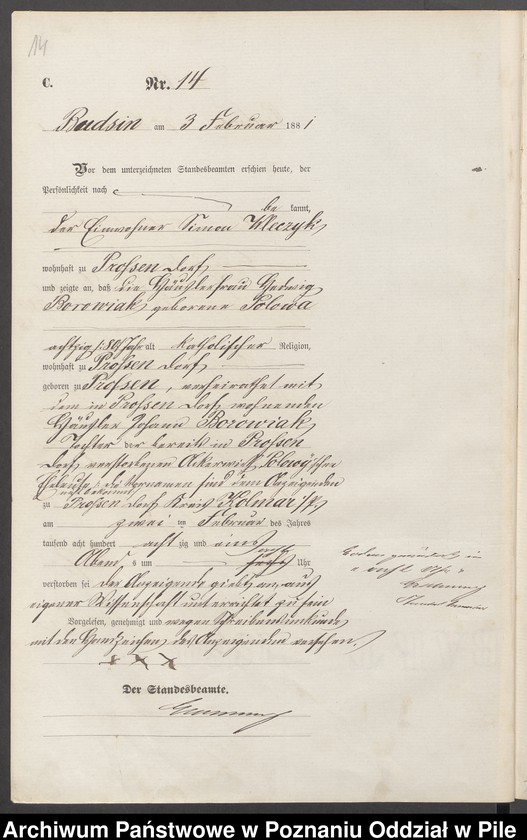 14
C. Nr. 14
Budsin am 3 Februar 1881
Vor dem unterzeichneten Standesbeamten erschien heute, der
Persönlichkeit nach
be kannt,
der Einwohner Simon Kleczyk
wohnhaft zu Prossen Dorf
und zeigte an, daß die Häuslerfrau Hedwig
Borowiak geborene Polowa
achtzig /:80:/ Jahr alt katholischer Religion,
wohnhaft zu Prossen Dorf
geboren zu Prossen, verheirathet mit
dem in Prossen Dorf wohnenden
Häusler Johann Borowiak
Tochter der bereits in Prossen
Dorf verstorbenen Ackerwirth
Eheleute, die Vornamen sind dem Anzeigenden
nicht bekannt
zu Prossen Dorf Kreis Kolmar i/P.
am zwei ten Februar des Jahres
tausend acht hundert acht zig und eins
Abend s um Uhr
verstorben sei der Anzeigende giebt an, aus
eigener Wissenschaft unterrichtet zu sein
Vorgelesen, genehmigt und wegen Schreibensunkunde
mit den Handzeichen des Anzeigenden versehen.
+ X X
Der Standesbeamte.
Archiwum Państwowe w Poznaniu Oddział w Pile